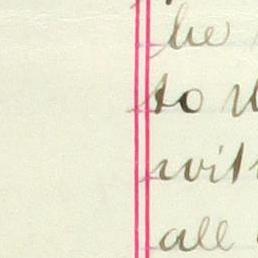 be
to
with
all